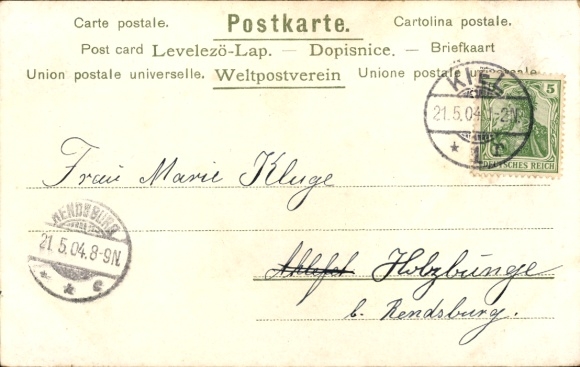 Carte postale. Postkarte. Cartolina postale.
Post card Levelező-Lap. — Dopisnice. — Briefkaart
Union postale universelle. Weltpostverein Unione postale universale.
KIEL
21.5.04.1-2N.
* 1 c
5
DEUTSCHES REICH
Frau Marie Kluge
RENDSBURG
21.5.04.8-9N.
* * c
Ahlefet Holzbunge
b. Rendsburg.